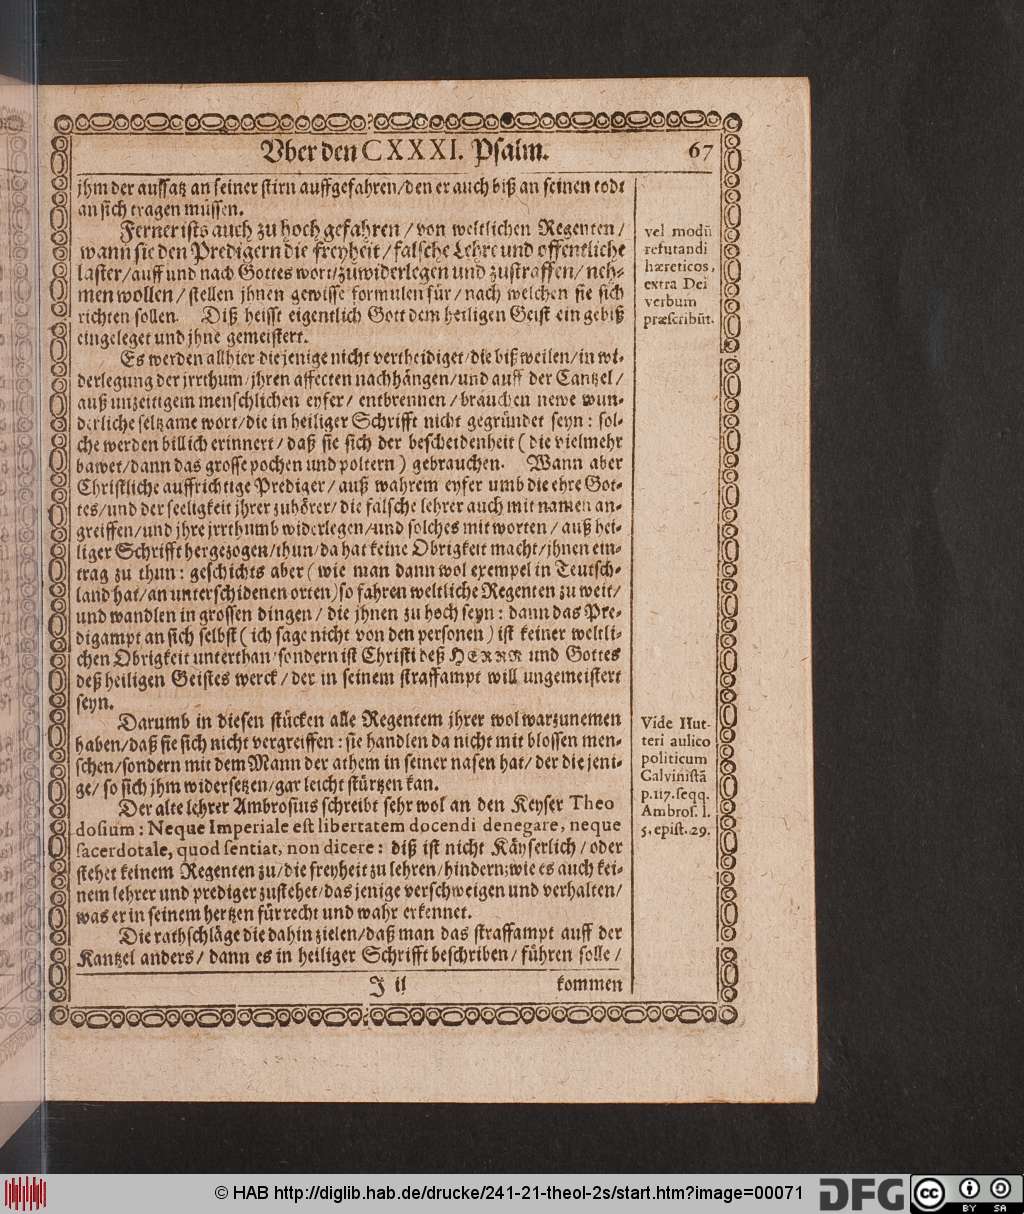 Vber den CXXXI. Psalm. 67
jhm der aussatz an seiner stirn auffgefahren/den er auch biß an seinen todt
an sich tragen müssen.
Ferner ists auch zu hoch gefahren / von weltlichen Regenten/
wann sie den Predigern die freyheit / falsche Lehre und offentliche
laster/auff und nach Gottes wort/zuwiderlegen und zustraffen/ neh-
men wollen/ stellen jhnen gewisse formulen für/ nach welchen sie sich
richten sollen. Diß heisst eigentlich Gott dem heiligen Geist ein gebiß
eingeleget und jhne gemeistert.
Es werden allhier die jenige nicht vertheidiget/die biß weilen/in wi-
derlegung der jrrthum/jhren affecten nachhängen/und auff der Cantzel/
auß unzeitigem menschlichen eyfer/ entbrennen/ brauchen newe wun-
derliche seltzame wort/die in heiliger Schrifft nicht gegründet seyn: sol-
che werden billich erinnert/ daß sie sich der bescheidenheit ( die vielmehr
bawet/dann das grosse pochen und poltern ) gebrauchen. Wann aber
Christliche auffrichtige Prediger/ auß wahrem eyfer umb die ehre Got-
tes/und der seeligkeit jhrer zuhörer/die falsche lehrer auch mit namen an-
greiffen/und jhre jrrthumb widerlegen/und solches mit worten / auß hei-
liger Schrifft hergezogen/thun/da hat keine Obrigkeit macht/jhnen ein-
trag zu thun: geschichts aber ( wie man dann wol exempel in Teutsch-
land hat/an unterschidenen orten)so fahren weltliche Regenten zu weit/
und wandlen in grossen dingen/ die jhnen zu hoch seyn: dann das Pre-
digampt an sich selbst ( ich sage nicht von den personen ) ist keiner weltli-
chen Obrigkeit unterthan/sondern ist Christi deß HERRN und Gottes
deß heiligen Geistes werck/ der in seinem straffampt will ungemeistert
seyn.
Darumb in diesen stücken alle Regentem jhrer wol warzunemen
haben/daß sie sich nicht vergreiffen: sie handlen da nicht mit blossen men-
schen/sondern mit dem Mann der athem in seiner nasen hat/ der die jeni-
ge/ so sich jhm widersetzen/gar leicht stürtzen kan.
Der alte lehrer Ambrosius schreibt sehr wol an den Keyser Theo
dosium: Neque Imperiale est libertatem docendi denegare, neque
sacerdotale, quod sentiat, non dicere: diß ist nicht Käyserlich/ oder
stehet keinem Regenten zu/die freyheit zu lehren/hindern;wie es auch kei-
nem lehrer und prediger zustehet/das jenige verschweigen und verhalten/
was er in seinem hertzen für recht und wahr erkennet.
Die rathschläge die dahin zielen/daß man das straffampt auff der
Kantzel anders/ dann es in heiliger Schrifft beschriben/ führen solle/
J ij kommen
vel modū
refutandi
hæreticos,
extra Dei
verbum
præscribūt.
Vide Hut-
teri aulico
politicum
Calvinistā
p. 117. seqq.
Ambros. l.
5. epist. 29.
© HAB http://diglib.hab.de/drucke/241-21-theol-2s/start.htm?image=00071
DFG
cc BY SA